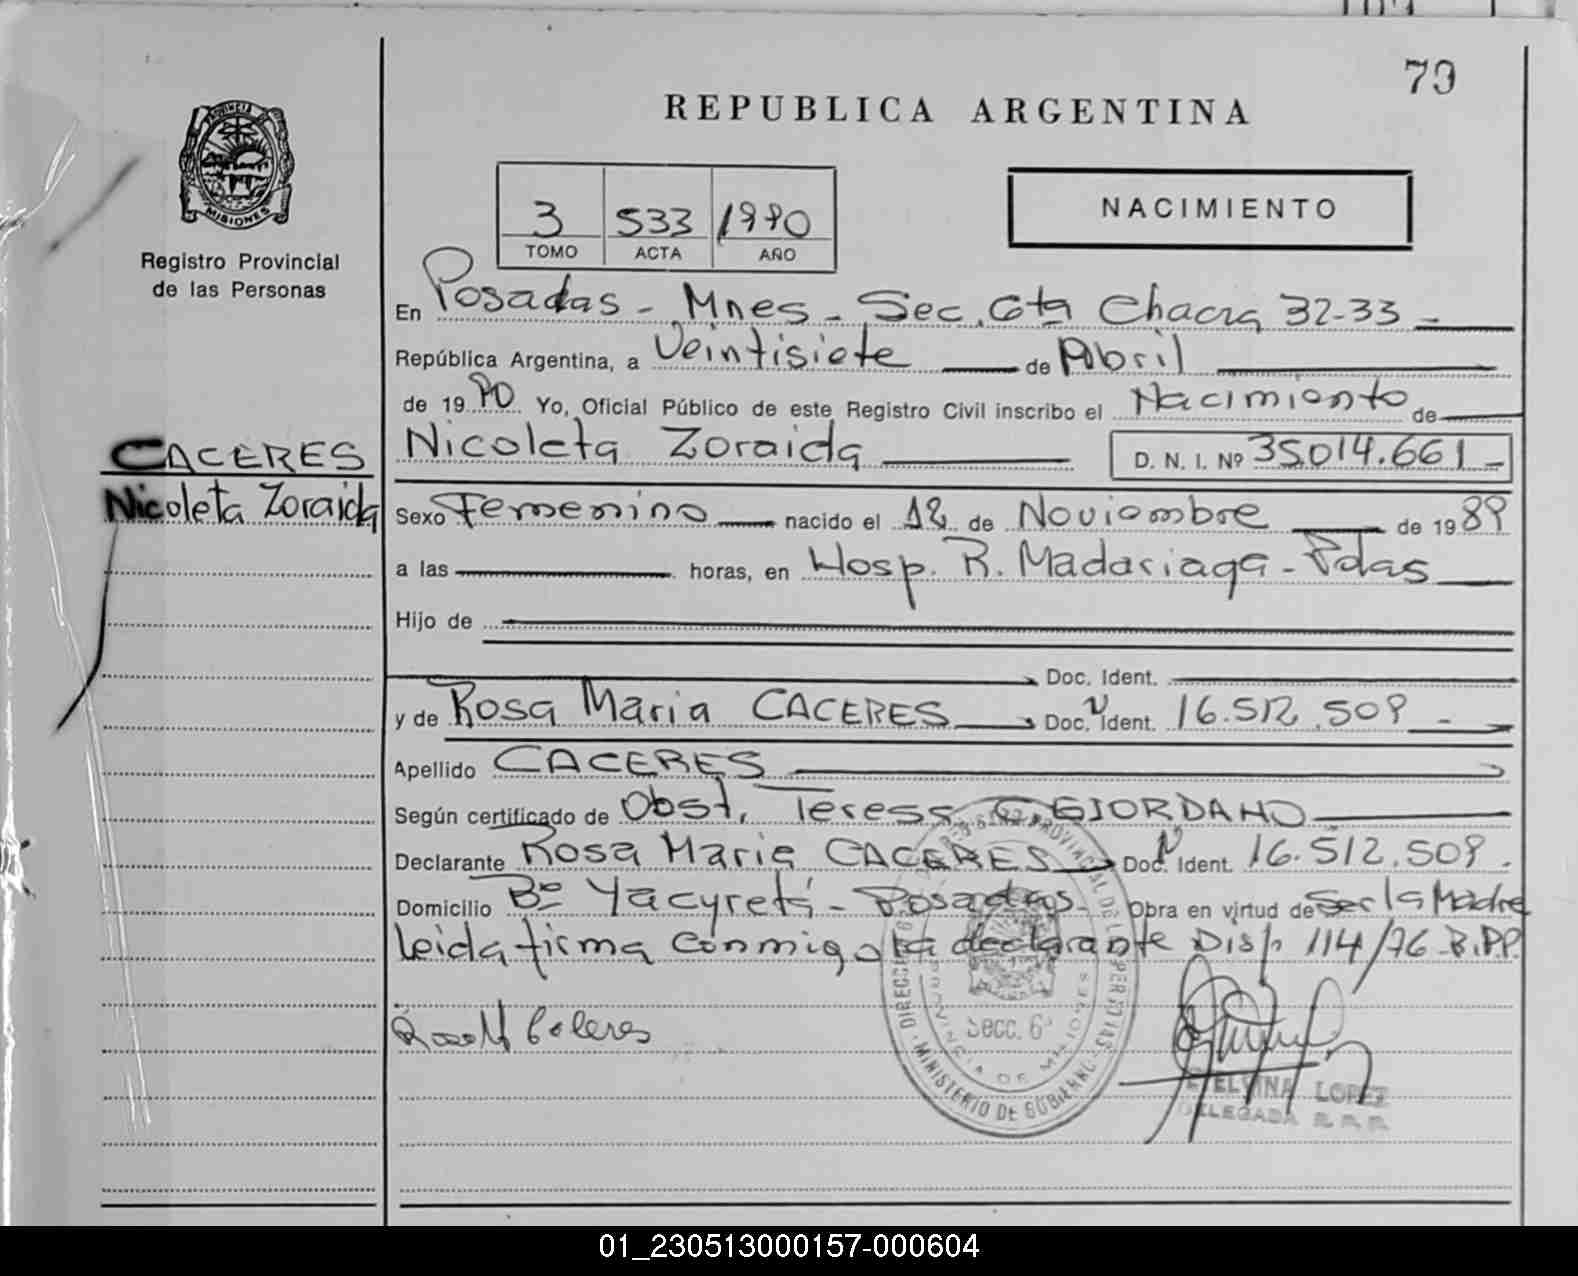 79
REPUBLICA ARGENTINA
PROVINCIA
MISIONES
Registro Provincial
de las Personas
3 533 1990
TOMO ACTA AÑO
NACIMIENTO
En Posadas - Mnes - Sec. 6ta Chacra 32-33 -
República Argentina, a Veintisiete de Abril
de 1990 Yo, Oficial Público de este Registro Civil inscribo el Nacimiento de
CACERES
Nicoleta Zoraida
Nicoleta Zoraida D. N. I. Nº 35.014.661 -
Sexo Femenino nacido el 12 de Noviembre de 1989
a las horas, en Hosp. R. Madariaga - Pdas
Hijo de
Doc. Ident.
y de Rosa Maria CACERES Doc. Ident. 16.512.509 -
Apellido CACERES
Según certificado de Obst. Teresa G. GIORDANO
Declarante Rosa Maria CACERES Doc. Ident. 16.512.509.
Domicilio Bº Yacyretá - Posadas - Obra en virtud de Ser la Madre
leida firma conmigo la declarante Disp 114/76 - B.P.P.
Rosa M Caceres
PROVINCIAL DE LAS PERSONAS
MINISTERIO DE GOBIERNO
PROVINCIA DE MISIONES
Secc. 6ª
ETELVINA LOPEZ
DELEGADA R. P. P.
01_230513000157-000604